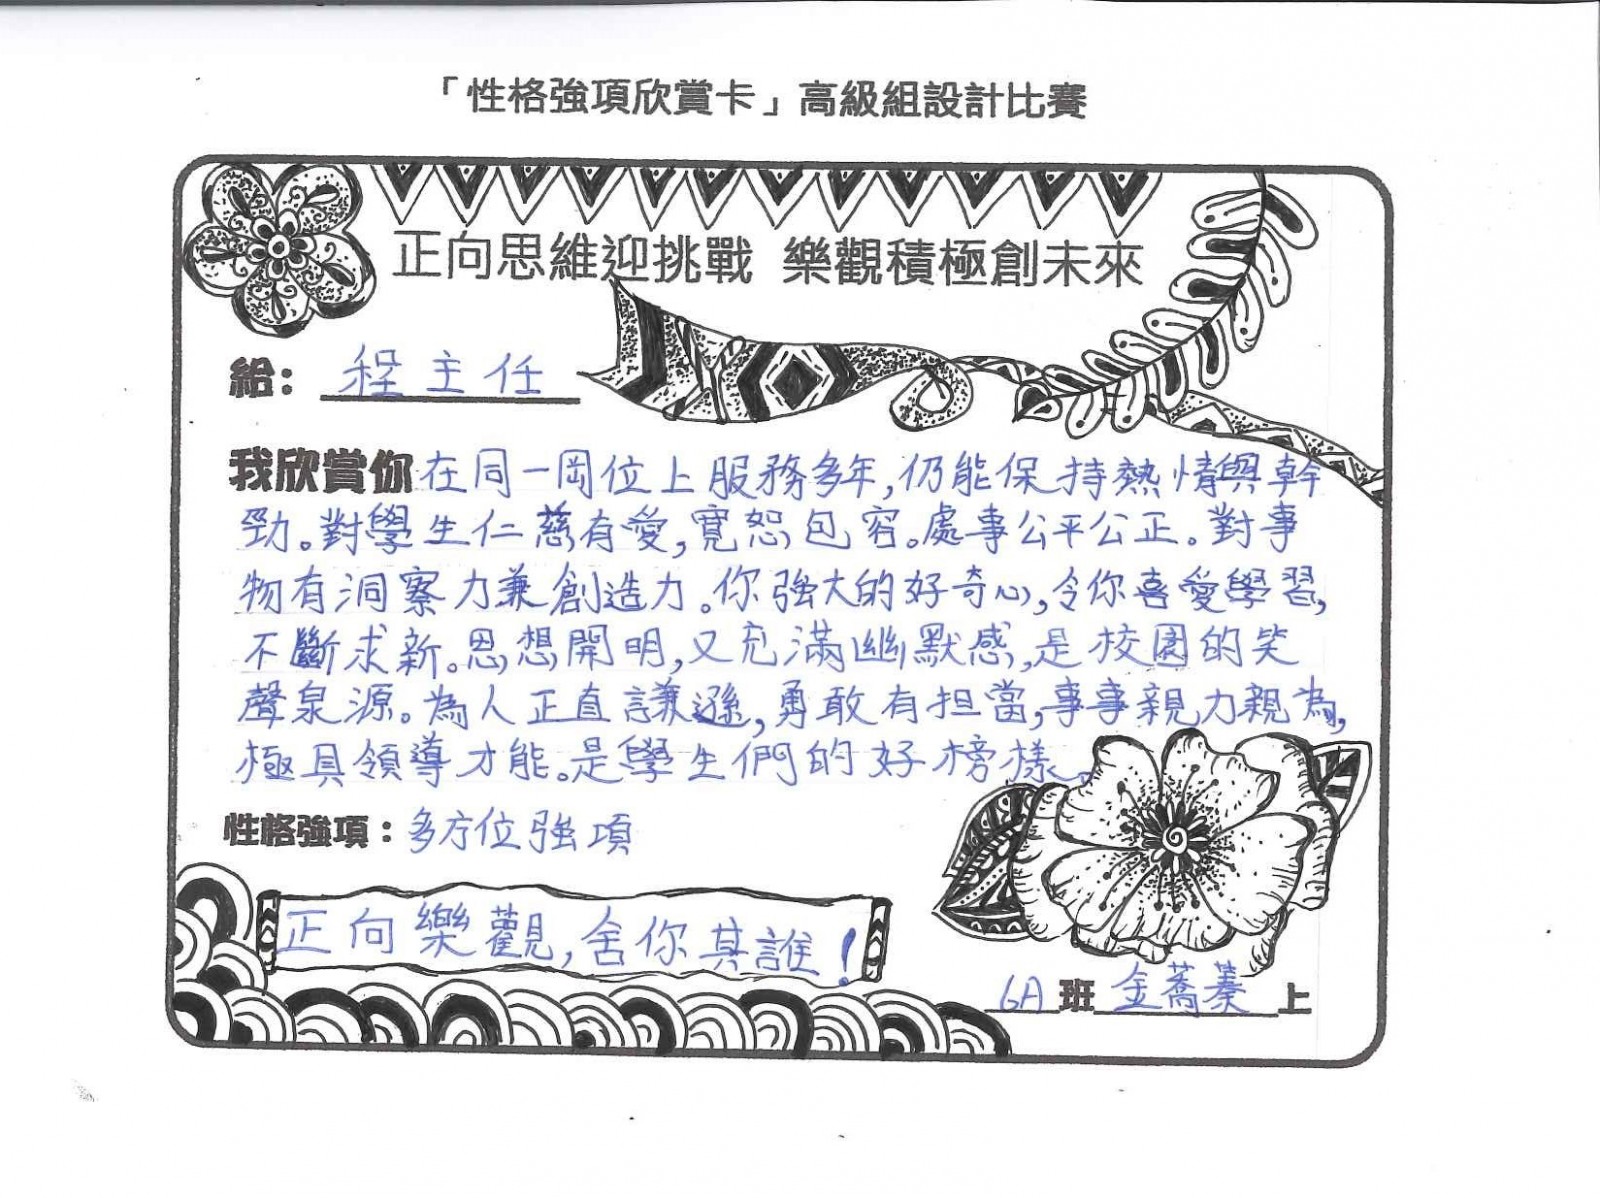 「性格強項欣賞卡」高級組設計比賽
正向思維迎挑戰 樂觀積極創未來
給：程主任
我欣賞你在同一崗位上服務多年,仍能保持熱情與幹
勁。對學生仁慈有愛,寬恕包容。處事公平公正。對事
物有洞察力兼創造力。你強大的好奇心,令你喜愛學習,
不斷求新。思想開明,又充滿幽默感,是校園的笑
聲泉源。為人正直謙遜,勇敢有担當,事事親力親為,
極具領導才能。是學生們的好榜樣。
性格強項：多方位強項
正向樂觀,舍你其誰!
6A班金蕎蓁上